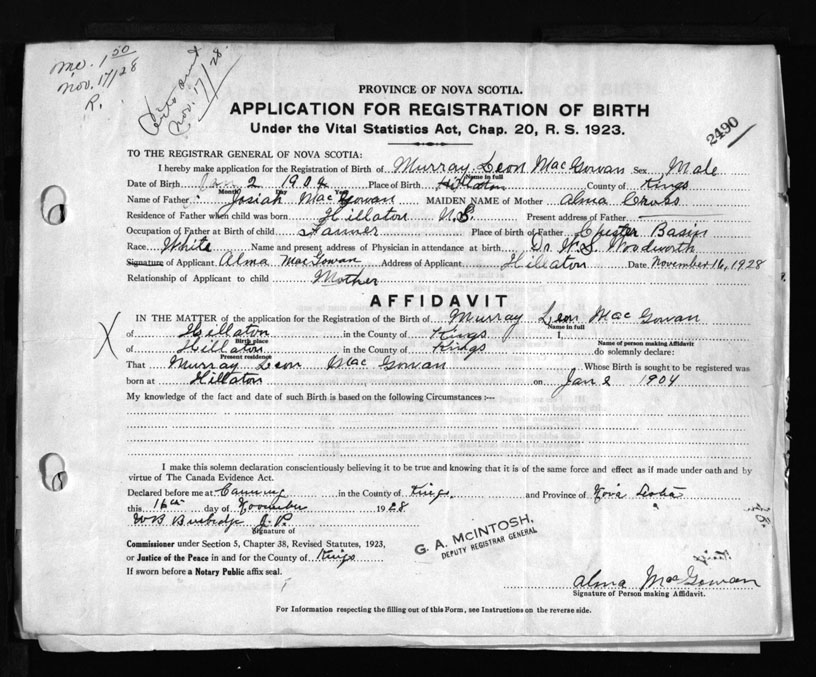 Mc. 1 50
Nov. 17/28
R.
Nov. 17/28
2490
PROVINCE OF NOVA SCOTIA.
APPLICATION FOR REGISTRATION OF BIRTH
Under the Vital Statistics Act, Chap. 20, R. S. 1923.
TO THE REGISTRAR GENERAL OF NOVA SCOTIA:
I hereby make application for the Registration of Birth of Murray Leon MacGowan Sex Male
Name in full
Date of Birth Jan 2 1904 Place of Birth Hillaton County of Kings
Month Day Year
Name of Father Josiah MacGowan MAIDEN NAME of Mother Alma Cross
Residence of Father when child was born Hillaton N.S. Present address of Father
Occupation of Father at Birth of child Farmer Place of birth of Father Chester Basin
Race White Name and present address of Physician in attendance at birth Dr. W.S. Woodworth
Signature of Applicant Alma MacGowan Address of Applicant Hillaton Date November 16, 1928
Relationship of Applicant to child Mother
AFFIDAVIT
IN THE MATTER of the application for the Registration of the Birth of Murray Leon MacGowan
Name in full
of Hillaton in the County of Kings I,
Birth place Name of person making Affidavit
of Hillaton in the County of Kings do solemnly declare:
Present residence
That Murray Leon MacGowan Whose Birth is sought to be registered was
born at Hillaton on Jan 2 1904
My knowledge of the fact and date of such Birth is based on the following Circumstances :--
I make this solemn declaration conscientiously believing it to be true and knowing that it is of the same force and effect as if made under oath and by
virtue of The Canada Evidence Act.
Declared before me at Canning in the County of Kings and Province of Nova Scotia
this 16th day of November 1928
W B Burgoyne J.P.
Signature of
Commissioner under Section 5, Chapter 38, Revised Statutes, 1923,
or Justice of the Peace in and for the County of Kings
If sworn before a Notary Public affix seal.
G. A. McINTOSH,
DEPUTY REGISTRAR GENERAL
Alma MacGowan
Signature of Person making Affidavit.
For Information respecting the filling out of this Form, see Instructions on the reverse side.